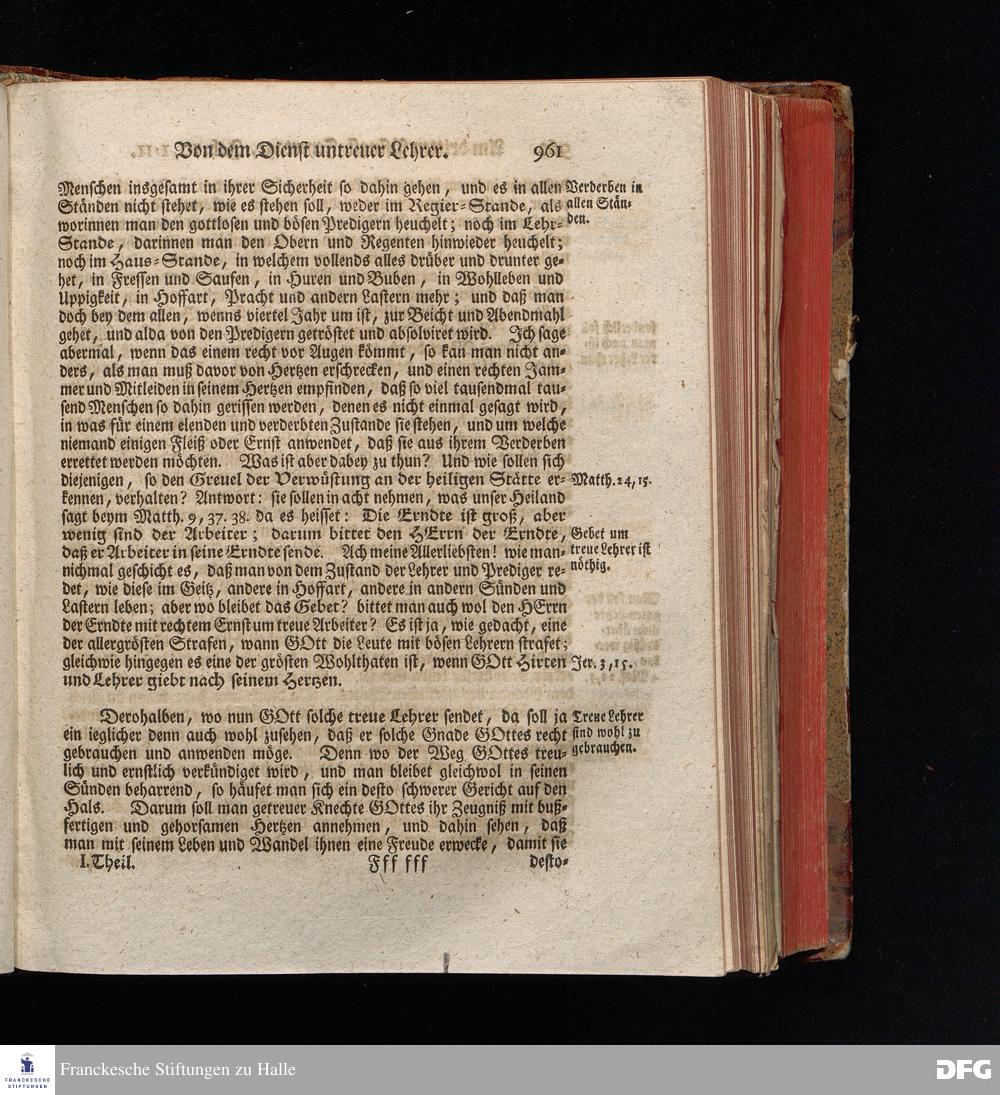 Von dem Dienst untreuer Lehrer. 961
Menschen insgesamt in ihrer Sicherheit so dahin gehen, und es in allen
Ständen nicht stehet, wie es stehen soll, weder im Regier-Stande, als
worinnen man den gottlosen und bösen Predigern heuchelt; noch im Lehr-
Stande, darinnen man den Obern und Regenten hinwieder heuchelt;
noch im Haus-Stande, in welchem vollends alles drüber und drunter ge-
het, in Fressen und Saufen, in Huren und Buben, in Wohlleben und
Uppigkeit, in Hoffart, Pracht und andern Lastern mehr; und daß man
doch bey dem allen, wenns viertel Jahr um ist, zur Beicht und Abendmahl
gehet, und alda von den Predigern getröstet und absolviret wird. Ich sage
abermal, wenn das einem recht vor Augen kömmt, so kan man nicht an-
ders, als man muß davor von Hertzen erschrecken, und einen rechten Jam-
mer und Mitleiden in seinem Hertzen empfinden, daß so viel tausendmal tau-
send Menschen so dahin gerissen werden, denen es nicht einmal gesagt wird,
in was für einem elenden und verderbten Zustande sie stehen, und um welche
niemand einigen Fleiß oder Ernst anwendet, daß sie aus ihrem Verderben
errettet werden möchten. Was ist aber dabey zu thun? Und wie sollen sich
diejenigen, so den Greuel der Verwüstung an der heiligen Stätte er-
kennen, verhalten? Antwort: sie sollen in acht nehmen, was unser Heiland
sagt beym Matth. 9, 37. 38. da es heisset: Die Erndte ist groß, aber
wenig sind der Arbeiter; darum bittet den HErrn der Erndte,
daß er Arbeiter in seine Erndte sende. Ach meine Allerliebsten! wie man-
nichmal geschicht es, daß man von dem Zustand der Lehrer und Prediger re-
det, wie diese im Geitz, andere in Hoffart, andere in andern Sünden und
Lastern leben; aber wo bleibet das Gebet? bittet man auch wol den HErrn
der Erndte mit rechtem Ernst um treue Arbeiter? Es ist ja, wie gedacht, eine
der allergrösten Strafen, wann GOtt die Leute mit bösen Lehrern strafet;
gleichwie hingegen es eine der grösten Wohlthaten ist, wenn GOtt Hirten
und Lehrer giebt nach seinem Hertzen.
Derohalben, wo nun GOtt solche treue Lehrer sendet, da soll ja
ein ieglicher denn auch wohl zusehen, daß er solche Gnade GOttes recht
gebrauchen und anwenden möge. Denn wo der Weg GOttes treu-
lich und ernstlich verkündiget wird, und man bleibet gleichwol in seinen
Sünden beharrend, so häufet man sich ein desto schwerer Gericht auf den
Hals. Darum soll man getreuer Knechte GOttes ihr Zeugniß mit buß-
fertigen und gehorsamen Hertzen annehmen, und dahin sehen, daß
man mit seinem Leben und Wandel ihnen eine Freude erwecke, damit sie
I. Theil. Fff fff desto-
Verderben in
allen Stän-
den.
Matth. 24, 15.
Gebet um
treue Lehrer ist
nöthig.
Jer. 3, 15.
Treue Lehrer
sind wohl zu
gebrauchen.
FRANCKESCHE
STIFTUNGEN
Franckesche Stiftungen zu Halle
DFG